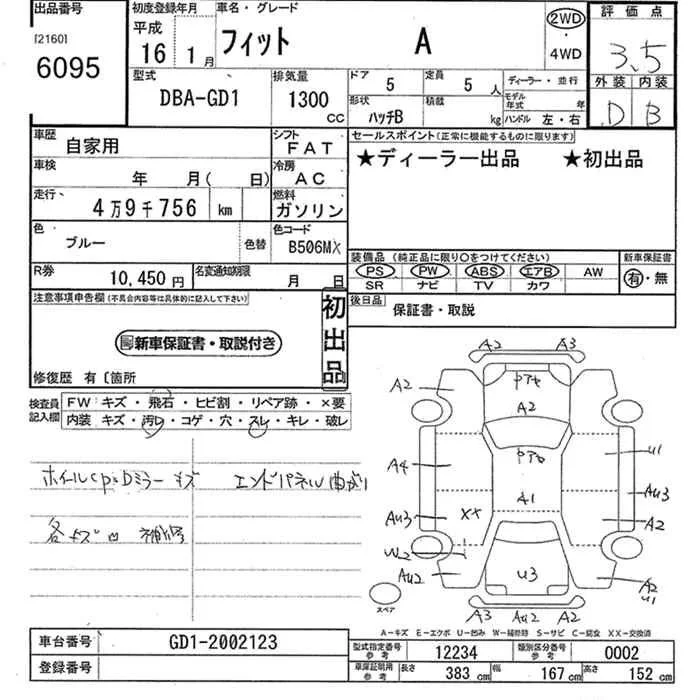 出品番号
[2160]
6095
初度登録年月
平成
16 1月
車名・グレード
フィット A
2WD
・
4WD
評価点
3.5
型式
DBA-GD1
排気量
1300
CC
ドア
5
定員
5 人
ディーラー・並行
外装 内装
D B
形状
ハッチB
積載
kg
モデル
年式 年
ハンドル 左・右
車歴
自家用
シフト
FAT
セールスポイント(正常に機能するものに限ります)
★ディーラー出品 ★初出品
車検
年 月( 日)
冷房
AC
走行、
4万9千756 km
燃料
ガソリン
色
ブルー
色替
色コード
B506MX
装備品(純正品に限り○をつけてください)
PS PW ABS エアB AW
SR ナビ TV カワ
新車保証書
有・無
R券
10,450円
名変通知期限
月 日
後日品
保証書・取説
注意事項申告欄(不具合内容等は具体的に記入して下さい)
新車保証書・取説付き
初出品
修復歴 有〔箇所
検査員
記入欄
FW キズ・飛石・ヒビ割・リペア跡・×要
内装 キズ・汚レ・コゲ・穴・スレ・キレ・破レ
キズ エンドパネル曲がり
各キズ凹
A2 A3
A2
A2
A4
A1
U1
AU3
AU3
XX
A2
W2
AU2
U3
A2
U1
スペア
A3 AU2 A2
A-キズ E-エクボ U-凹み W-補修跡 S-サビ C-腐食 XX-交換済
車台番号
GD1-2002123
登録番号
型式指定番号
参考
12234
類別区分番号
参考
0002
車庫証明用
参考
長さ
383 cm
幅
167 cm
高さ
152 cm